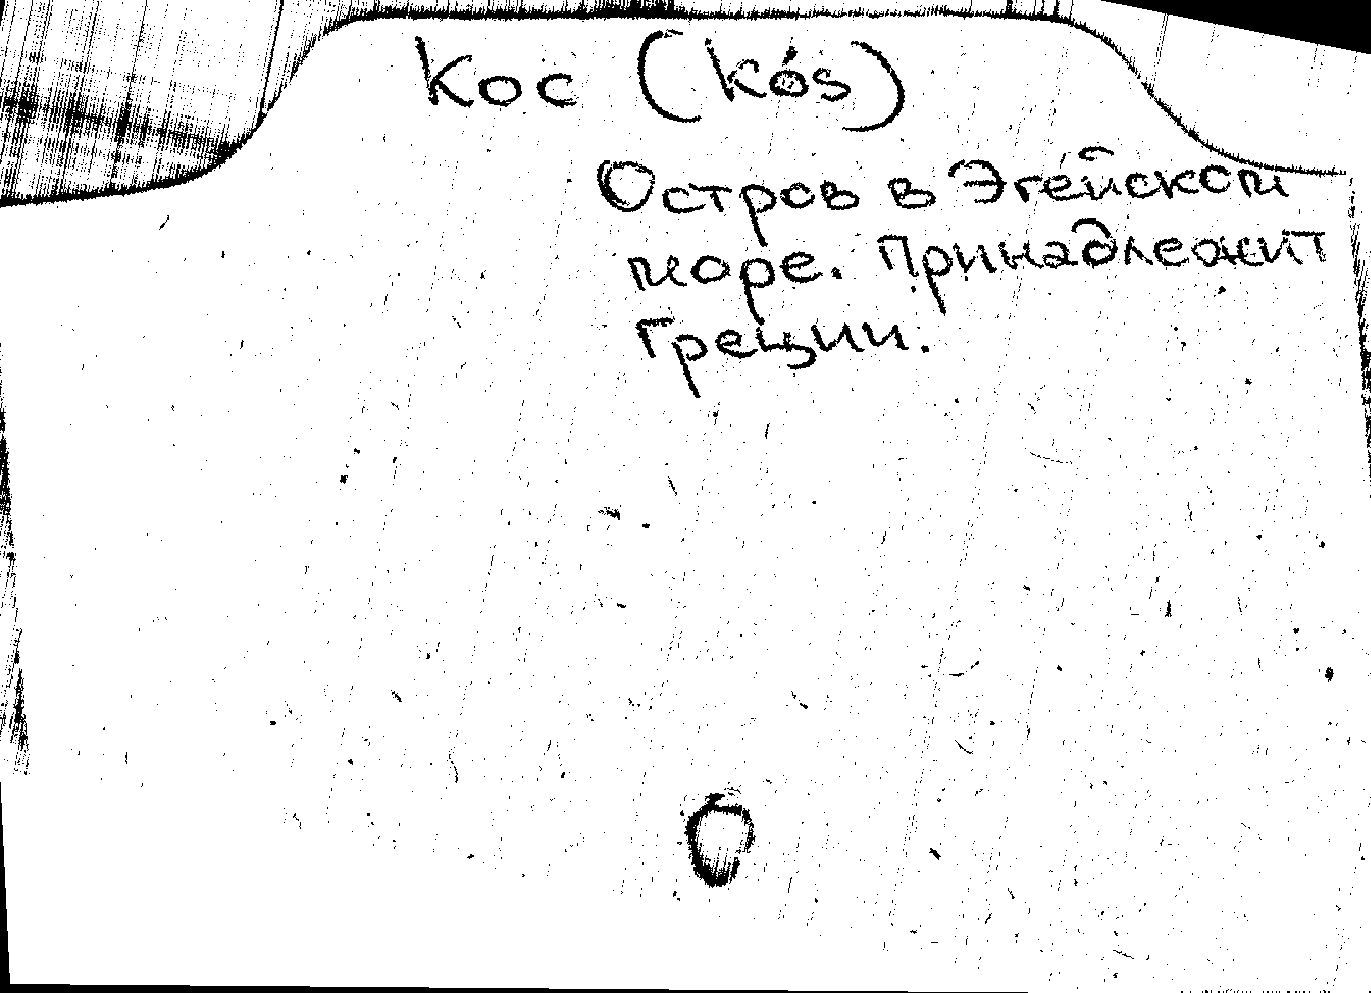 Кос (Kós)
Остров в Эгейском
море. Принадлежит
Греции.